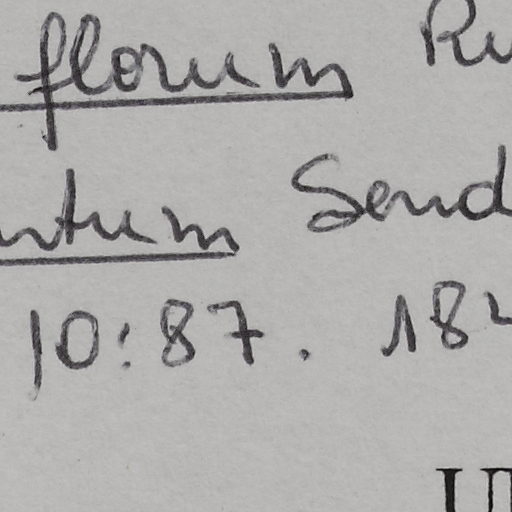 florum Ru
ntum Send
10:87. 182
U